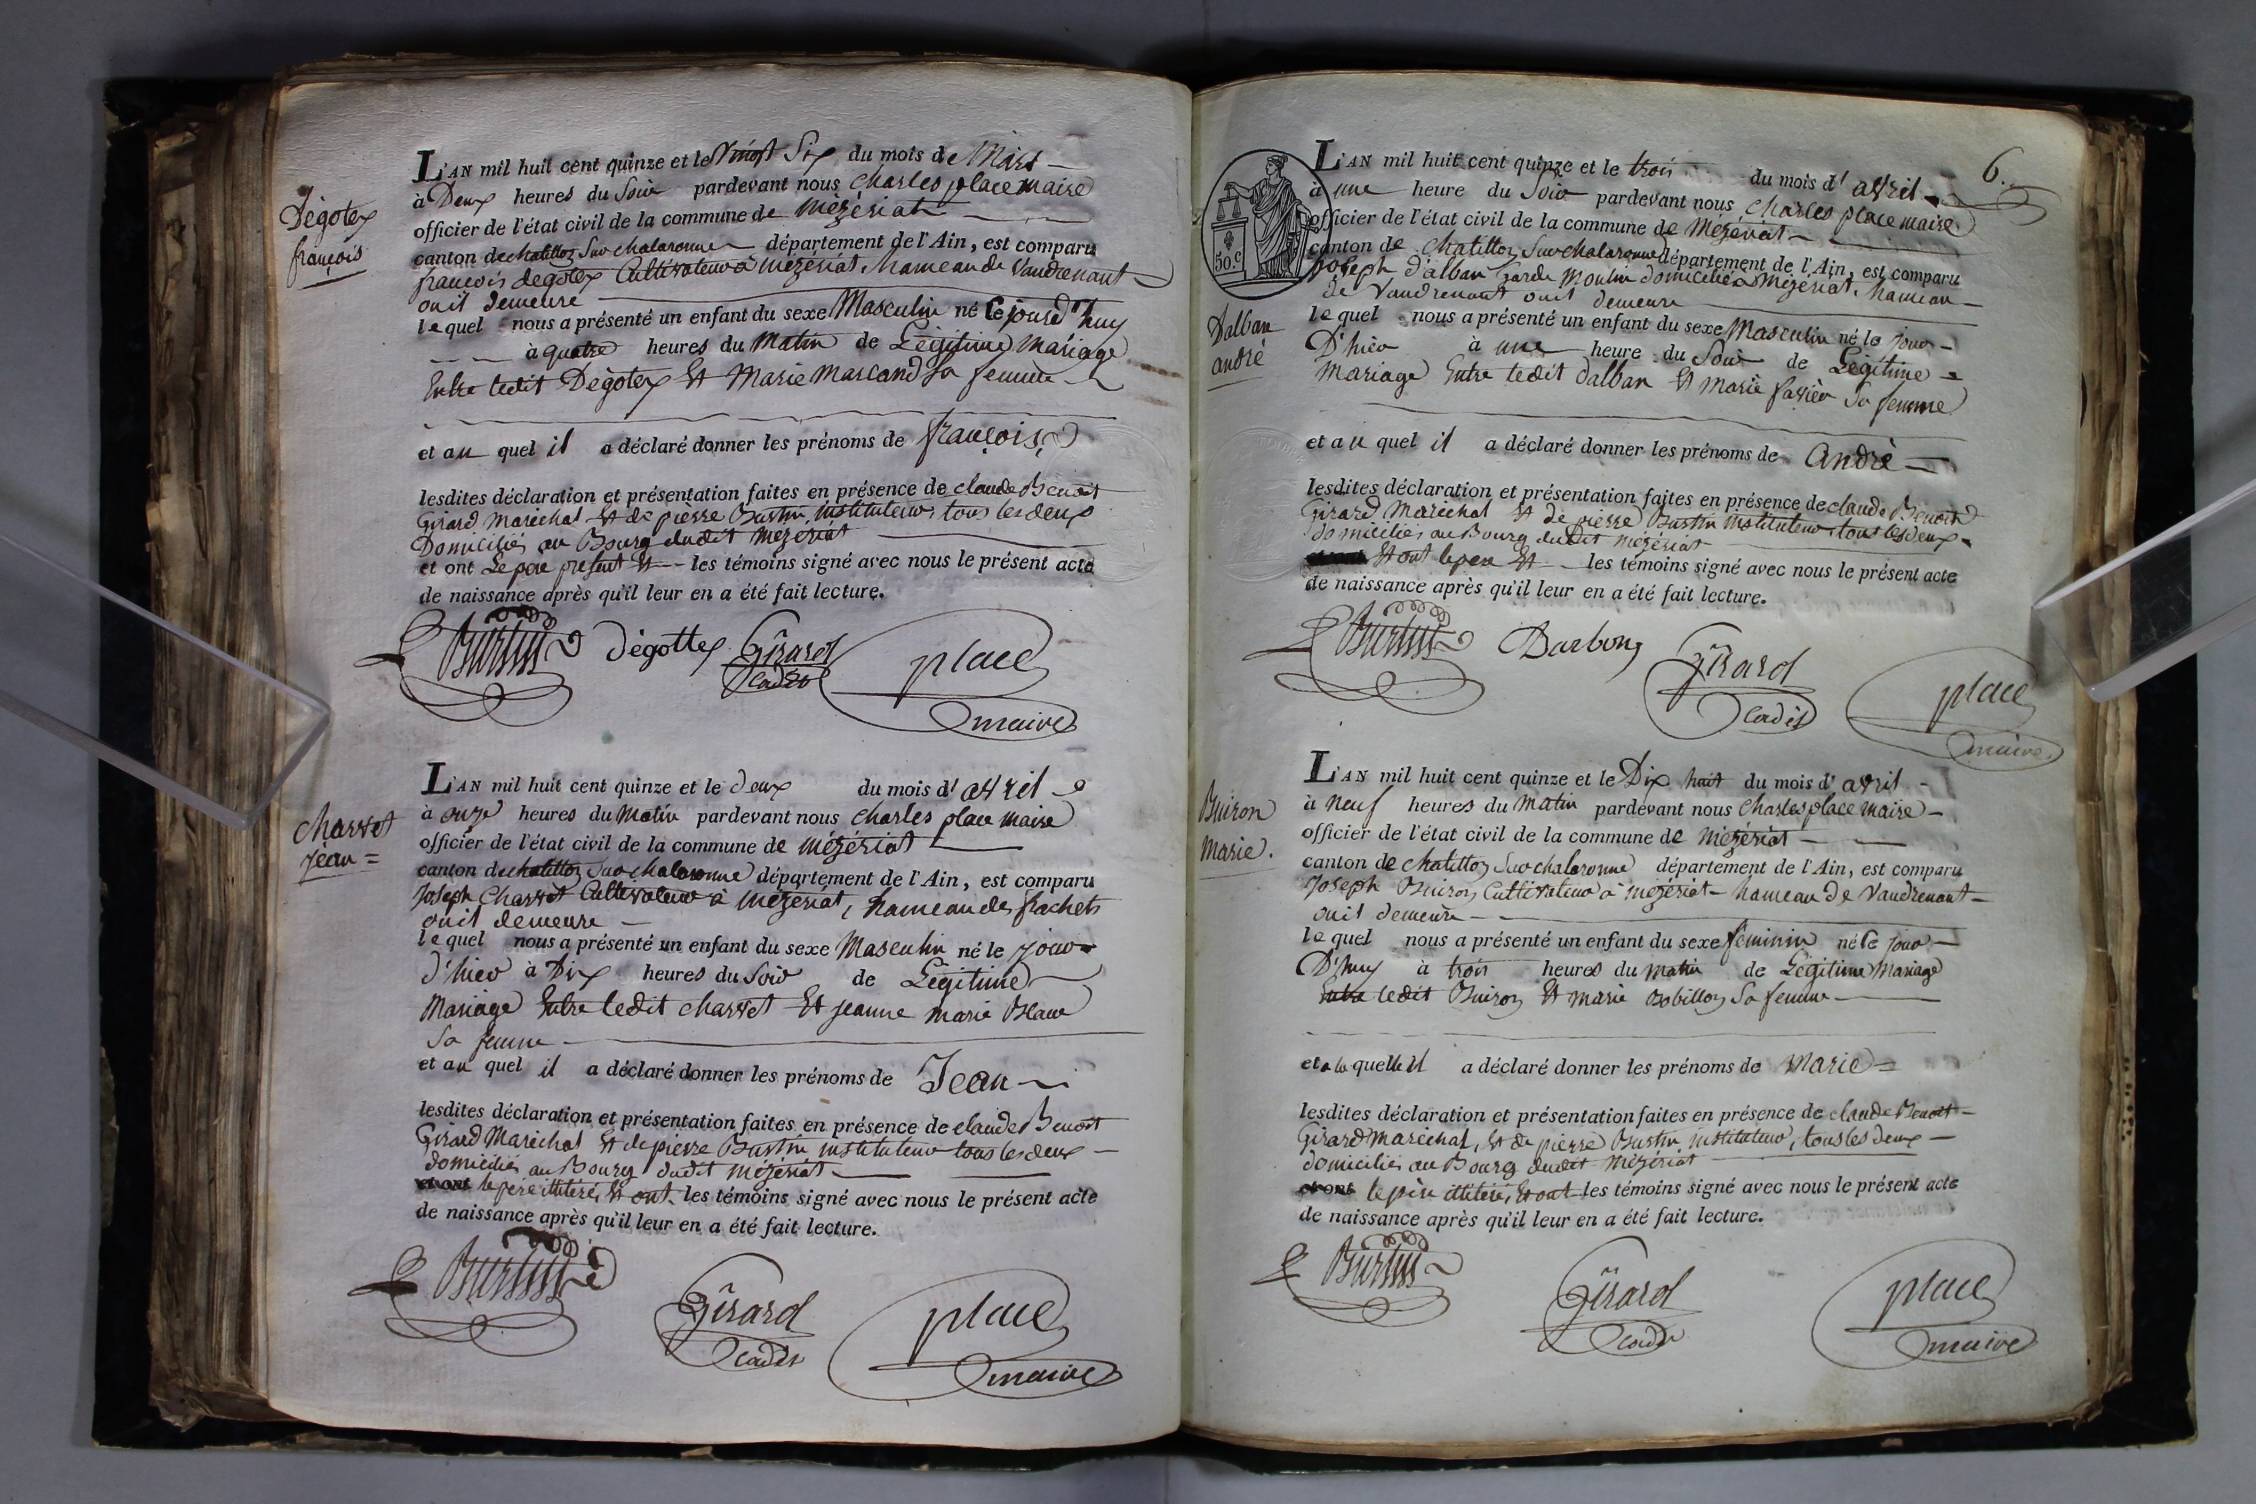 Dégotex
françois
L'AN mil huit cent quinze et le Vingt Six du mois de Mars
à Deux heures du Soir pardevant nous Charles place maire
officier de l'état civil de la commune de Mézériat
canton de chatillon Sur chalaronne département de l'Ain, est comparu
françois degotex Cultivateur à mézériat, hameau de Vaudrenant
ou il demeure
lequel nous a présenté un enfant du sexe Masculin né Ce jourd'huy
à quatre heures du matin de Légitime mariage
Entre ledit Dégotex Et Marie Marcand sa femme
et au quel il a déclaré donner les prénoms de françois
lesdites déclaration et présentation faites en présence de claude Benoit
Girard Maréchal Et de pierre Burtin, instituteur, tous les deux
Domiciliés au Bourg dudit Mézériat
et ont Le père présent Et les témoins signé avec nous le présent acte
de naissance après qu'il leur en a été fait lecture.
Burtin Dégottex Girard place
cadet maire
Charvet
Jean =
L'AN mil huit cent quinze et le deux du mois d'avril
à onze heures du matin pardevant nous charles place maire
officier de l'état civil de la commune de mézériat
canton de chatillon Sur chalaronne département de l'Ain, est comparu
Joseph Charvet Cultivateur à mézériat, hameau des frachets
ou il demeure
lequel nous a présenté un enfant du sexe Masculin né le jour
d'hier à Dix heures du Soir de Légitime
Mariage Entre ledit charvet Et jeanne marie Blanc
Sa femme
et au quel il a déclaré donner les prénoms de Jean
lesdites déclaration et présentation faites en présence de claude Benoit
Girard Maréchal Et de pierre Burtin instituteur tous les deux
domiciliés au Bourg dudit mézériat
et ont le père illitéré, Et ont les témoins signé avec nous le présent acte
de naissance après qu'il leur en a été fait lecture.
Burtin Girard place
cadet maire
6.
50.c
Dalban
andré
L'AN mil huit cent quinze et le trois du mois d'avril
à une heure du Soir pardevant nous Charles place maire
officier de l'état civil de la commune de Mézériat
canton de Chatillon Sur chalaronne département de l'Ain, est comparu
Joseph D'alban Garde Moulin domicilié à Mézériat, hameau
de Vaudrenant ou il demeure
lequel nous a présenté un enfant du sexe Masculin né le jour
D'hier à une heure du Soir de Légitime
mariage Entre ledit dalban Et marie favier Sa femme
et au quel il a déclaré donner les prénoms de andré
lesdites déclaration et présentation faites en présence de claude Benoit
Girard Maréchal Et de pierre Burtin instituteur tous les deux
domiciliés au Bourg dudit mézériat
Et ont le père Et les témoins signé avec nous le présent acte
de naissance après qu'il leur en a été fait lecture.
Burtin Darbon Girard place
cadet maire
Buiron
marie.
L'AN mil huit cent quinze et le Dix huit du mois d'avril
à neuf heures du matin pardevant nous Charles place maire
officier de l'état civil de la commune de mézériat
canton de chatillon Sur chalaronne département de l'Ain, est comparu
Joseph Buiron Cultivateur à mézériat hameau de Vaudrenant
ou il demeure
lequel nous a présenté un enfant du sexe féminin né Ce jour
D'huy à trois heures du matin de Légitime Mariage
Entre ledit Buiron Et marie Bobillon Sa femme
et a la quelle il a déclaré donner les prénoms de marie =
lesdites déclaration et présentation faites en présence de claude Benoit
Girard Maréchal, Et de pierre Burtin instituteur, tous les deux
domiciliés au Bourg dudit mézériat
et ont le père illitéré, Et ont les témoins signé avec nous le présent acte
de naissance après qu'il leur en a été fait lecture.
Burtin Girard place
cadet maire